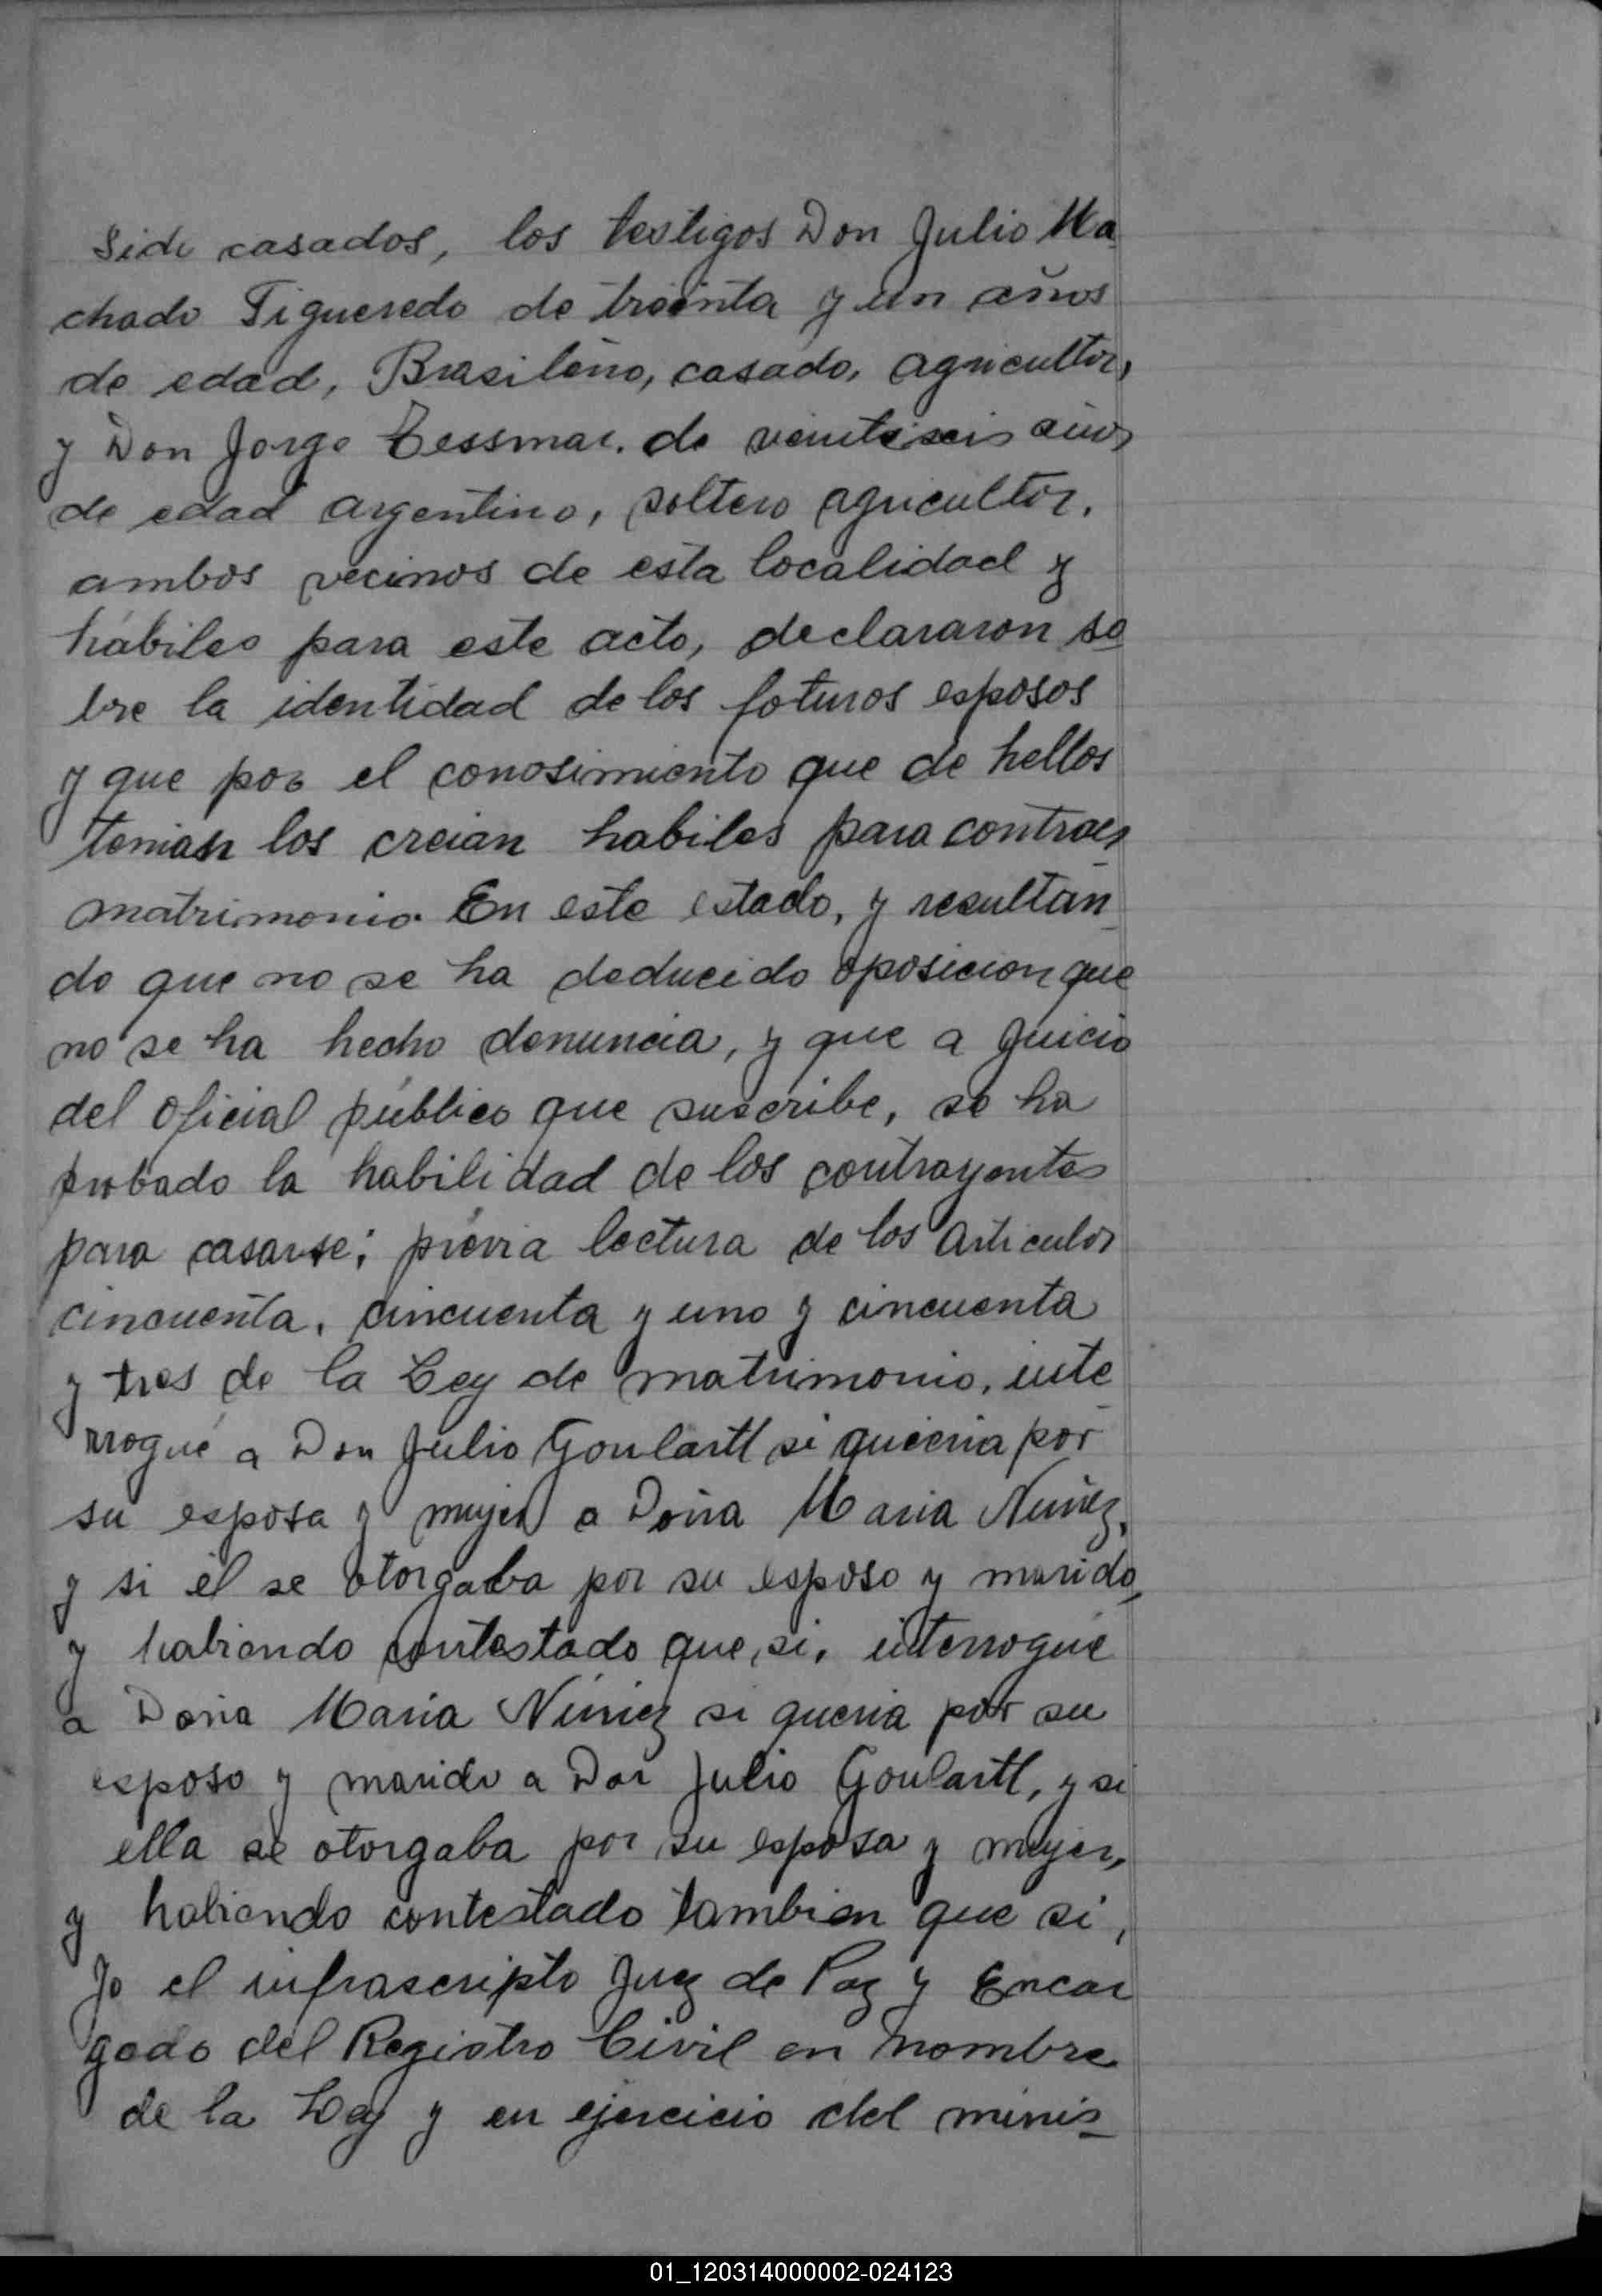 sido casados, los testigos Don Julio Ma
chado Figueredo de treinta y un años
de edad, Brasileño, casado, agricultor,
y Don Jorge Tessmar. de veinteiseis años
de edad argentino, soltero agricultor.
ambos vecinos de esta localidad y
hábiles para este acto, declararon so
bre la identidad de los foturos esposos
y que por el conosimiento que de hellos
tenian los creian habiles para contraer
matrimonio. En este estado, y resultan
do que no se ha deducido oposicion que
no se ha hecho denuncia, y que a juicio
del oficial público que suscribe, se ha
probado la habilidad de los contrayentes
para casarse; prévia lectura de los articulos
cincuenta, cincuenta y uno y cincuenta
y tres de la Ley de matrimonio, inte
rrogué a Don Julio Goulartt si queeria por
su esposa y mujer a Doña Maria Nuñez,
y si él se otorgaba por su esposo y marido,
y habiendo contestado que, si, interrogué
a Doña Maria Núñez si queria por su
esposo y marido a Don Julio Goulartt, y si
ella se otorgaba por su esposa y mujer,
y habiendo contestado tambien que si,
Jo el infrascripto Juez de Paz y Encar
gado del Registro Civil en nombre
de la Ley y en ejercicio del minis-
01_120314000002-024123